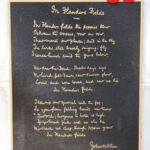 In Flanders Fields
In Flanders fields the poppies grow
Between the crosses, row on row,
That mark our place: and in the sky
The larks still bravely singing, fly
Scarce heard amid the guns below.
We are the Dead. Short days ago
We lived, felt dawn, saw sunset glow,
Loved and were loved, and now we lie
In Flanders fields.
Take up our quarrel with the foe:
To you from failing hands we throw
The torch; be yours to hold it high
If ye break faith with us who die
We shall not sleep, though poppies grow
In Flanders fields
John McCrae